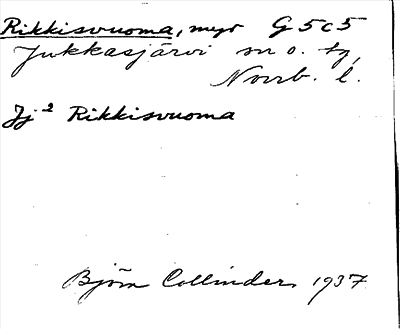 Rikkisvuoma, myr G5c5
Jukkasjärvi sn o. tg,
Norrb. l.
Jj² Rikkisvuoma
Björn Collinder 1937